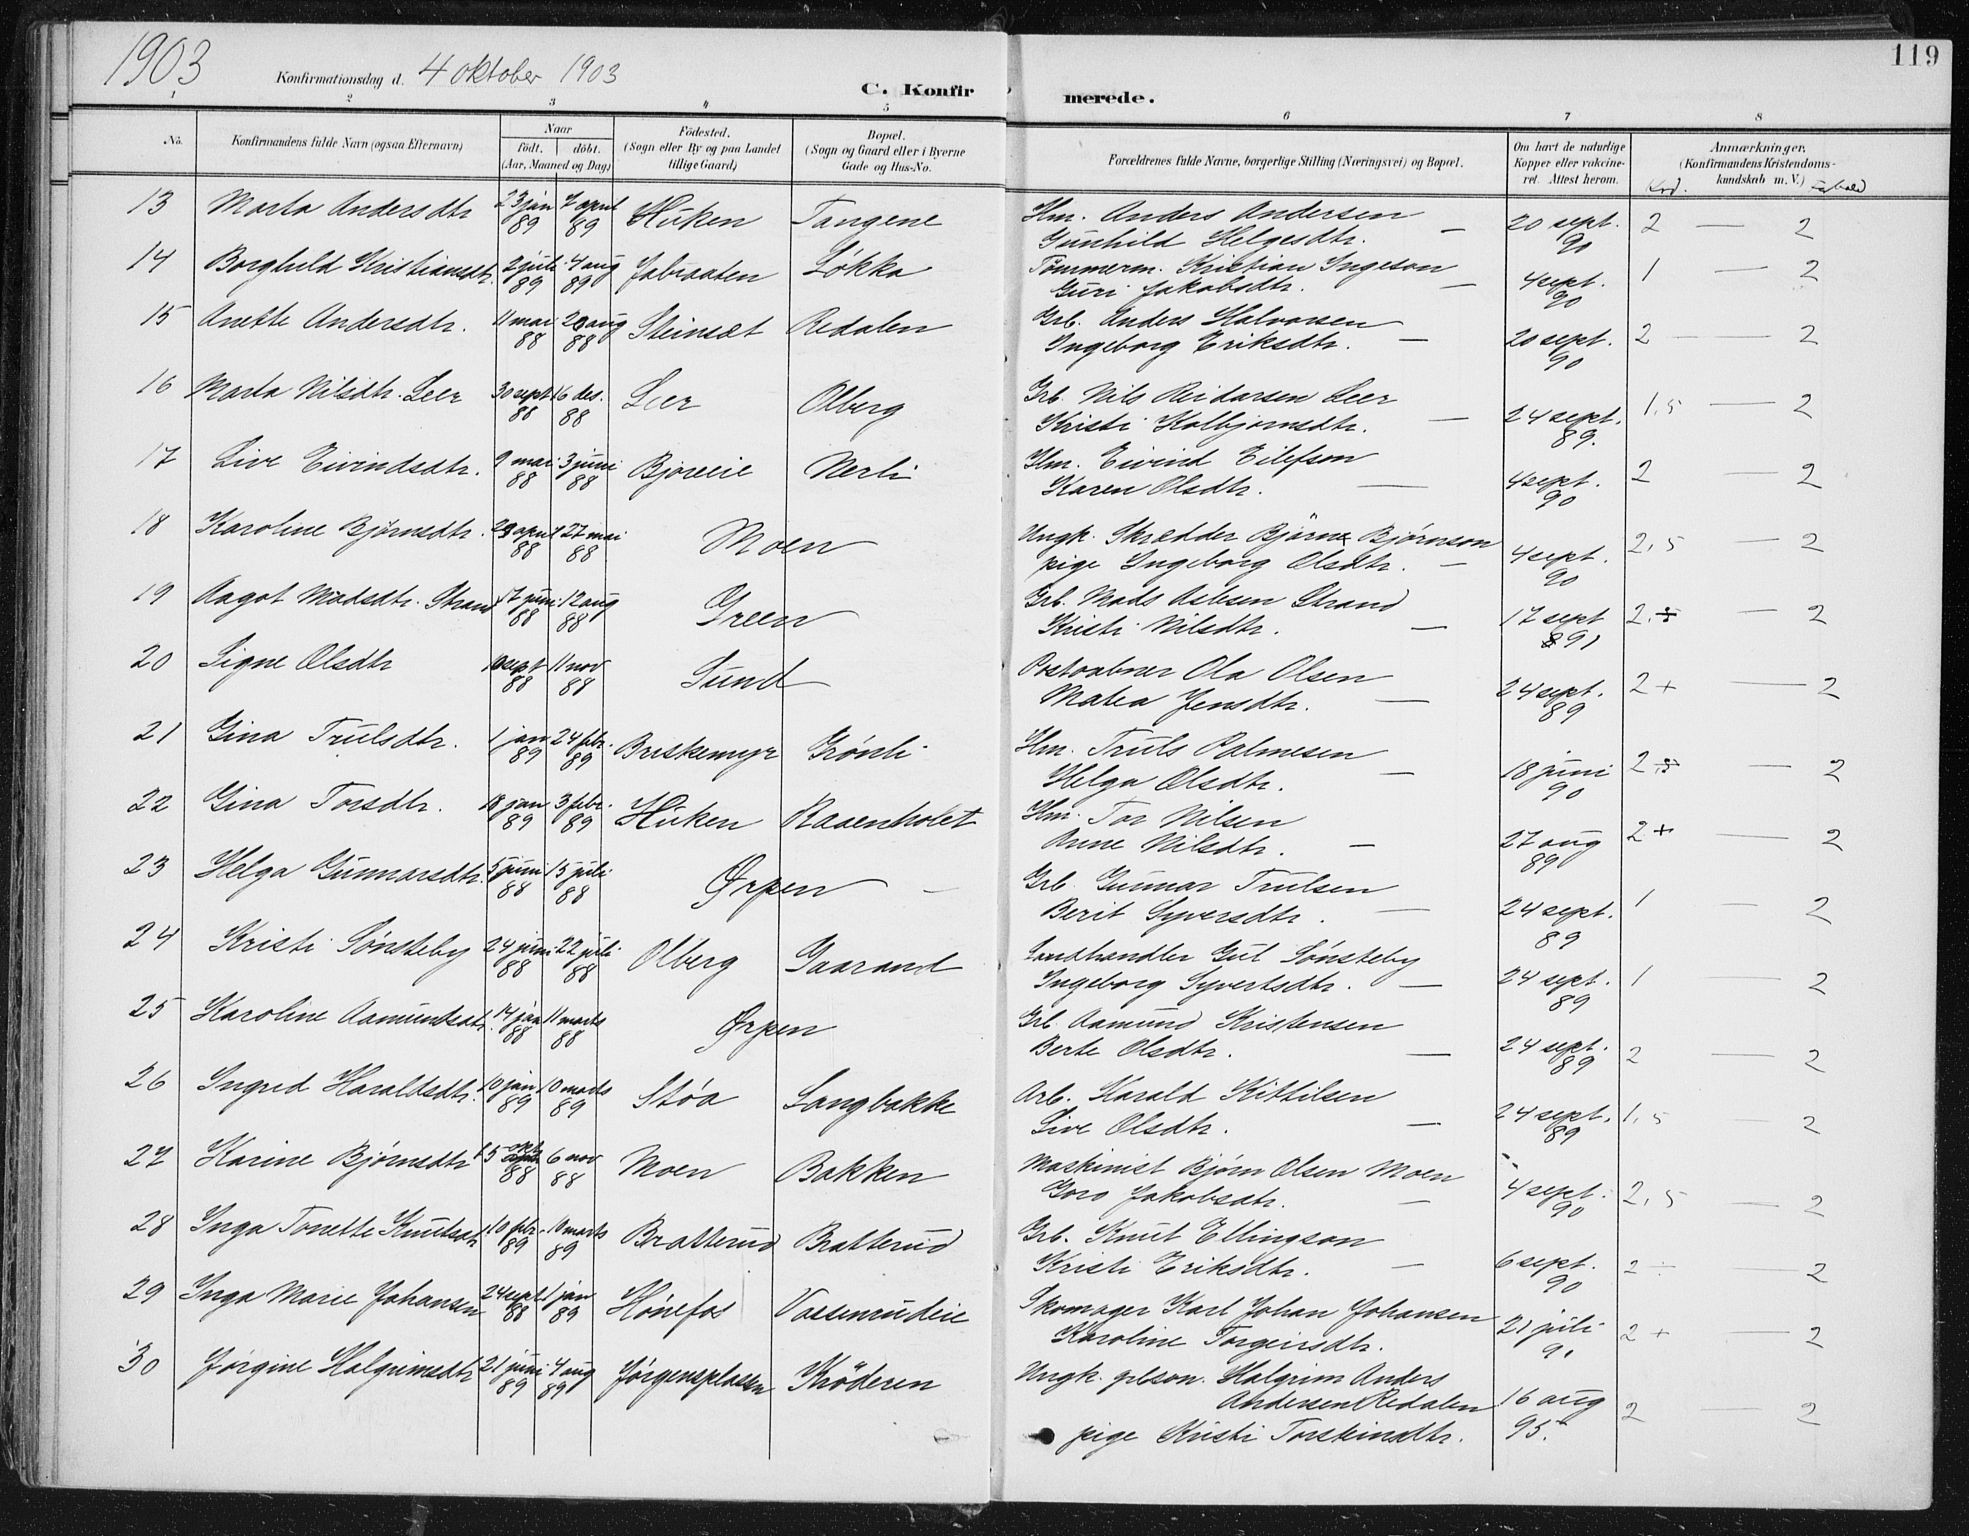 1903
Konfirmationsdag d. 4 oktober 1903
C. Konfirmerede.
119
1 2 3 4 5 6 7 8
No.
Konfirmandens fulde Navn (ogsaa Efternavn)
Naar
født. døbt.
(Aar, Maaned og Dag)
Födested.
(Sogn eller By og paa Landet
tillige Gaard)
Bopæl.
(Sogn og Gaard eller i Byerne
Gade og Hus-No.
Forældrenes fulde Navne, borgerlige Stilling (Næringsvei) og Bopæl.
Om havt de naturlige
Kopper eller vakcine-
ret. Attest herom.
Anmærkninger.
(Konfirmandens Kristendoms-
kundskab m. V.)
13 Marta Andersdtr 23 jan 89 7 april 89 Huken Tangene
Hm. Anders Andersen
Gunhild Helgesdtr. — 20 sept. 90 2 — 2
14 Borghild Kristiansdtr. 2 juli 89 4 aug 89 Løkka
Tømmerm. Kristian Ingeson
Guri Jakobsdtr. — 4 sept. 90 1 — 2
15 Anette Andersdtr. 11 mai 88 20 aug 88 Steinsæt Redalen
Grb. Anders Halvorsen
Ingeborg Eriksdtr. — 20 sept. 90 2 — 2
16 Marta Nilsdtr. Leer 30 sept 88 16 des. 88 Leer Olberg
Grb. Nils Reidarsen Leer
Kristi Kolbjornsdtr. — 24 sept. 89. 1,5 — 2
17 Live Eivindsdtr. 9 mai 88 3 juni 88 Bjøreie Nerli
Hm. Eivind Eilefson
Karen Olsdtr. — 4 sept. 90 2 — 2
18 Karoline Bjørnsdtr. 29 april 88 27 mai 88 Moen
Ungk. Skrædder Bjørn Bjørnson
pige Ingeborg Olsdtr. — 4 sept. 90 2,5 — 2
19 Aagot Madsdtr. Strand 17 juni 88 12 aug 88 Green
Grb. Mads Asbsen Strand
Kristi Nilsdtr. — 17 sept 91 2 — 2
20 Signe Olsdtr 10 sept 88 11 nov 88 Sund
Postaabner Ola Olsen
Matea Jensdtr. — 24 sept. 89 2+ — 2
21 Gina Trulsdtr. 1 jan 89 24 febr. 89 Briskemyr Grønli
Hm. Truls Palmesen
Helga Olsdtr. — 18 juni 90 2 — 2
22 Gina Torsdtr. 18 jan 89 3 febr. 89 Huken Raaenholet
Hm. Tor Nilsen
Anne Nilsdtr. — 27 aug 89 2+ — 2
23 Helga Gunnarsdtr. 5 juni 88 15 juli 88 Ørpen —
Grb. Gunnar Trulsen
Berit Syversdtr. — 24 sept. 89 1 — 2
24 Kristi Sønsteby 24 juni 88 22 juli 88 Olberg Gaarand
Landhandler Gul Sønsteby
Ingeborg Syvertsdtr. — 24 sept. 89 1 2
25 Karoline Aamundsdtr. 14 jan 88 11 marts 88 Ørpen
Grb. Aamund Kristensen
Berte Olsdtr. — 24 sept. 89 2 2
26 Ingrid Haraldsdtr. 10 jan 89 10 marts 89 Støa Langbakke
Arb. Harald Kittilsen
Live Olsdtr. — 24 sept. 89 1,5 2
27 Karine Bjørnsdtr 15 okt 88 6 nov 88 Moen Bakken
Maskinist Bjørn Olsen Moen
Goro Jakobsdtr. — 4 sept. 90 2,5 — 2
28 Inga Tonette Knutsdtr 10 febr. 89 10 marts 89 Bratterud Bratterud
Grb. Knut Ellingson
Kristi Eriksdtr. — 6 sept. 90 2 — 2
29 Inga Marie Johansen 24 sept. 88 1 jan 89 Hønefos Vassenrudeie
Skomager Karl Johan Johansen
Karoline Torgeirsdtr. 21 juli 91 2+ — 2
30 Jørgine Halgrimsdtr 21 juni 89 4 aug 89 Jørgensplassen Krøderen
Ungk. grbson. Halgrim Anders
Andersen Redalen
pige Kristi Torsteinsdtr. 16 aug 95. 2 — 2